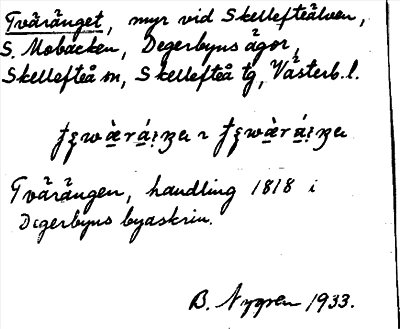 Tväränget, myr vid Skellefteälven,
S. Mobacken, Degerbyns ägor,
Skellefteå sn, Skellefteå tg, Västerb. l.
Tvärängen, handling 1818 i
Degerbyns byaskrin.
B. Nygren 1933.